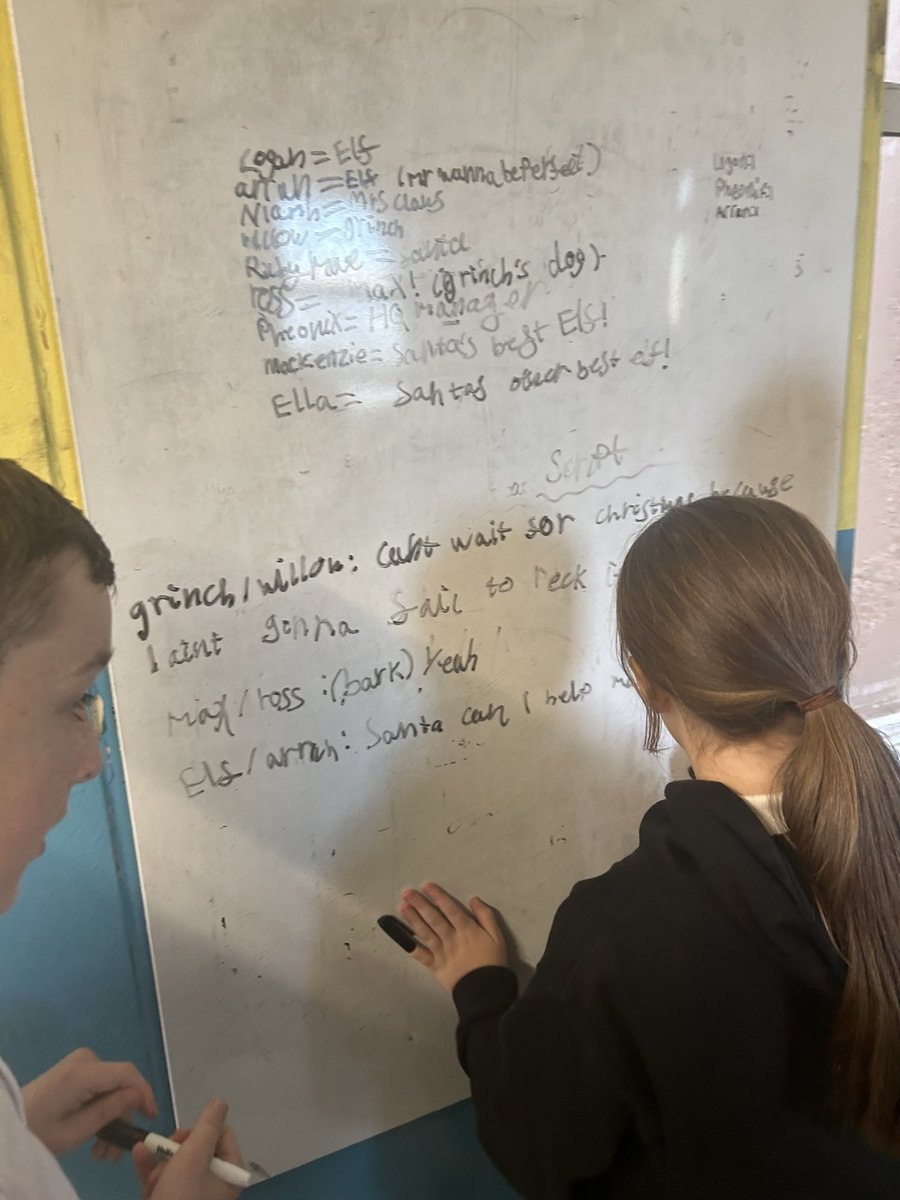 Logan = Elf
arran = Elf (mr wanna be Perfect)
Niamh = Mrs claus
willow = grinch
Ruby Mae = santa
ross = Max! (grinch's dog).
Pheonix = HQ manager
mackenzie = Santa's best Elf!
Ella = Santas other best elf!
Logan
Pheonix
Arran
Script
grinch/willow: Cant wait for christmas because
I aint gonna fail to reck
Max/ross: (bark) Yeah
Elf/arran: Santa can I help